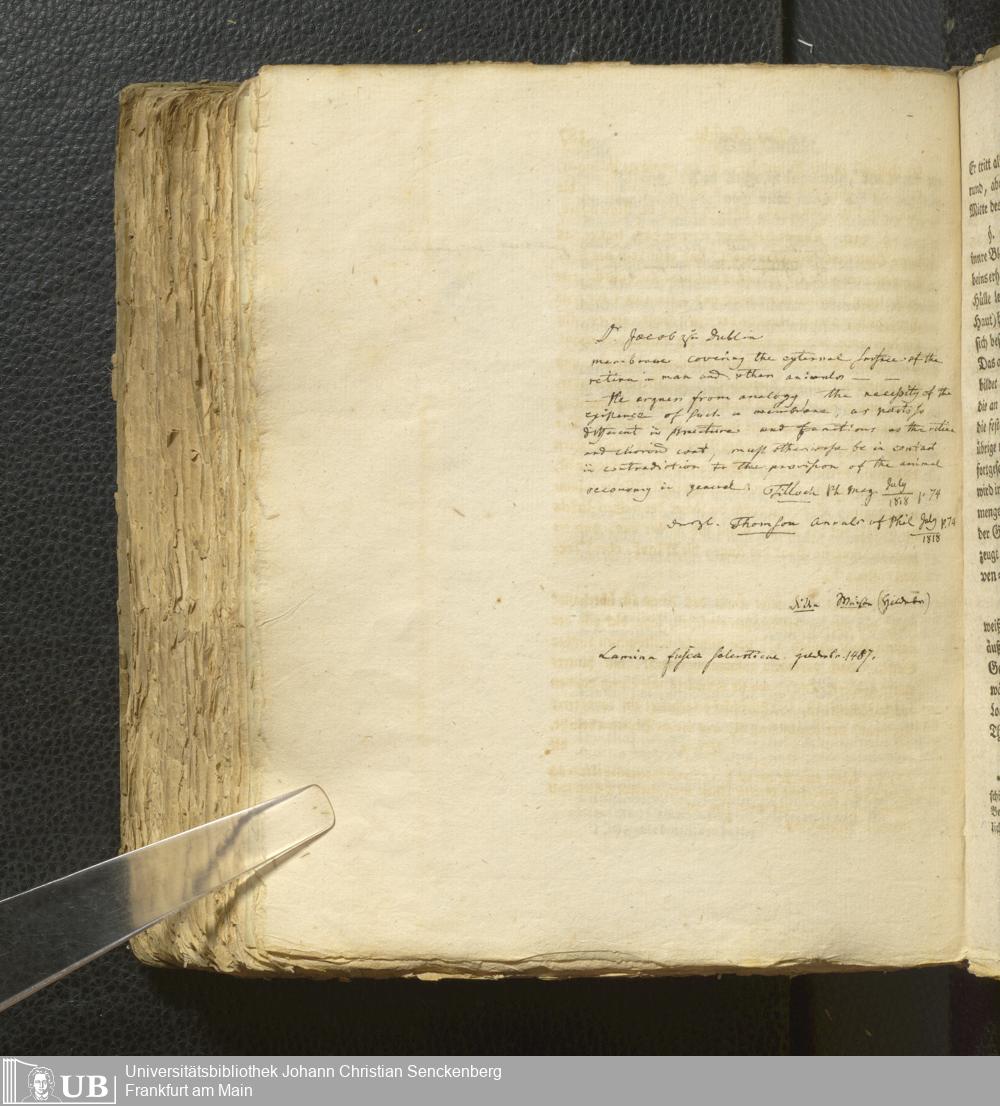 Dr Jacob zu Dublin
membrane covering the external surface of the
retina in man and other animals — —
— He argues from analogy, the necessity of the
existence of such a membrane, as parts so
different in structure and functions as the retina
and choroid coat, must otherwise be in contact
in contradiction to the provision of the animal
oeconomy in general. Tilloch Ph mag. July 1818 p. 74
Thomson Annals of Phil July 1818 p. 74
Lamina fusca scleroticae 1487.
Er tritt al
rund, ab
Mitte des
§.
innre Bl
beins erh
Hülle
Haut)
sich bef
Das
bildet
die an
die fest
übrige
fortgese
wird in
menge
der G
zeugt
ven
weiß
äuß
Ge
UB
Universitätsbibliothek Johann Christian Senckenberg
Frankfurt am Main